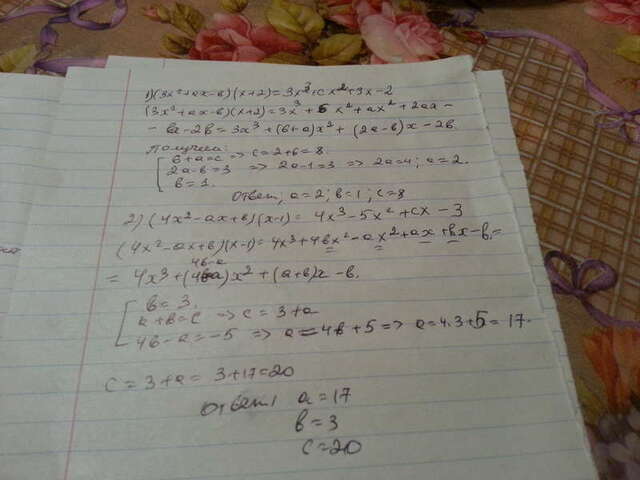 1) (3x²+ax-в)(x+2)=3x³+cx²+3x-2
(3x²+ax-в)(x+2)=3x³+6x²+ax²+2ax-
-вx-2в=3x³+(6+a)x²+(2a-в)x-2в.
Получили:
6+a=c => c=2+6=8
2a-в=3 => 2a-1=3 => 2a=4; a=2.
в=1.
Ответ; a=2; в=1; c=8
2) (4x²-ax+в)(x-1)=4x³-5x²+cx-3
(4x²-ax+в)(x-1)=4x³+4вx²-ax²+ax+вx-в=
4в-a
=4x³+( )x²+(a+в)x-в.
в=3.
a+в=c => c=3+a
4в-a=-5 => a=4в+5=> a=4·3+5=17.
c=3+a=3+17=20
Ответ: a=17
в=3
c=20